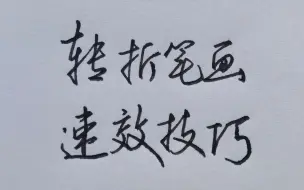 转折笔画
速效技巧